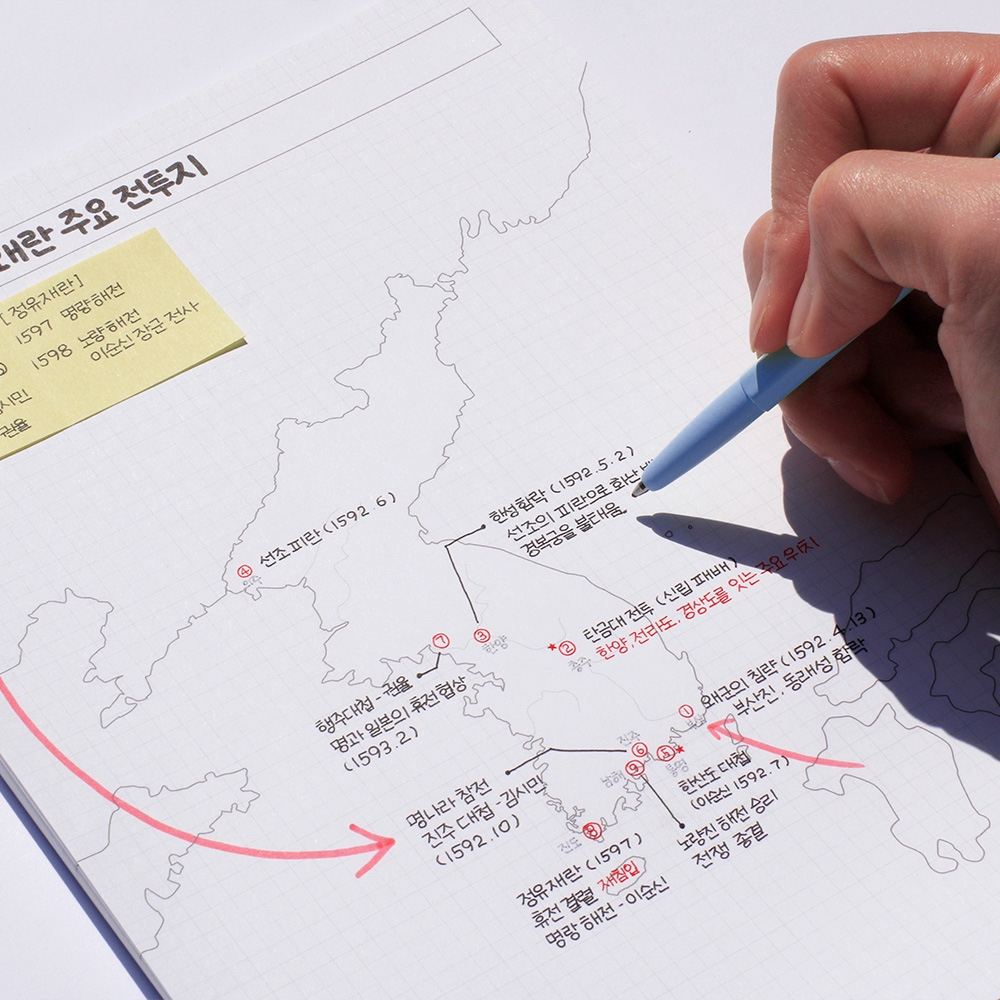 왜란 주요 전투지
[정유재란]
1597 명량해전
1598 노량해전
이순신 장군 전사
김시민
권율
한성함락 (1592.5.2)
선조의 피란으로 화난
경복궁을 불태움.
④ 선조피란 (1592.6)
의주
탄금대 전투 (신립 패배)
★② 한양, 전라도, 경상도를 잇는 주요 위치
충주
⑦
③
한양
행주대첩 - 권율
명과 일본의 휴전협상
(1593.2)
① 왜군의 침략 (1592.4.13)
부산
부산진, 동래성 함락
진주
⑥
⑤★
통영
⑨
남해
한산도 대첩
(이순신 1592.7)
명나라 참전
진주 대첩 - 김시민
(1592.10)
노량진 해전 승리
전쟁 종결
⑧
진도
정유재란 (1597)
휴전 결렬 재침입
명랑 해전 - 이순신